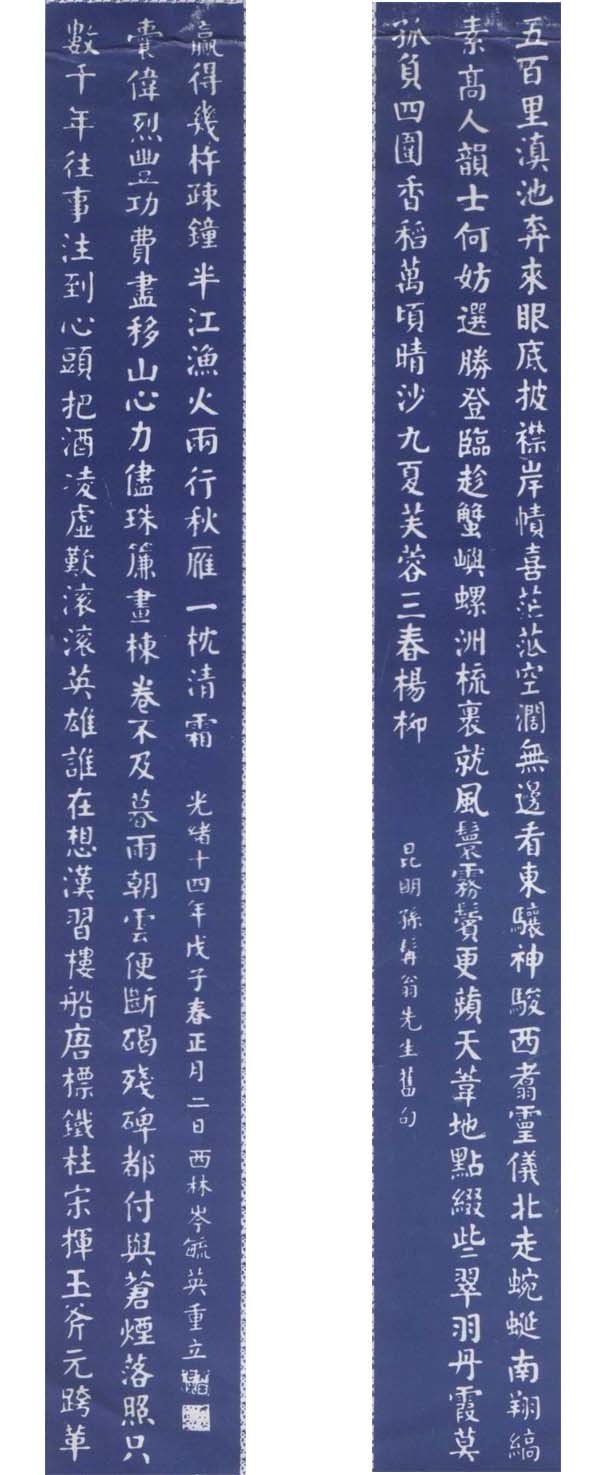 五百里滇池奔來眼底披襟岸幘喜茫茫空濶無邊看東驤神駿西翥靈儀北走蜿蜒南翔縞
素高人韻士何妨選勝登臨趁蟹嶼螺洲梳裹就風鬟霧鬢更蘋天葦地點綴些翠羽丹霞莫
孤負四圍香稻萬頃晴沙九夏芙蓉三春楊柳
昆明孫髯翁先生舊句
數千年往事注到心頭把酒凌虛歎滚滚英雄誰在想漢習樓船唐標鐵柱宋揮玉斧元跨革
囊偉烈豐功費盡移山心力儘珠簾畫棟卷不及暮雨朝雲便斷碣殘碑都付與蒼煙落照只
贏得幾杵疎鐘半江漁火兩行秋雁一枕清霜
光緒十四年戊子春正月二日西林岑毓英重立